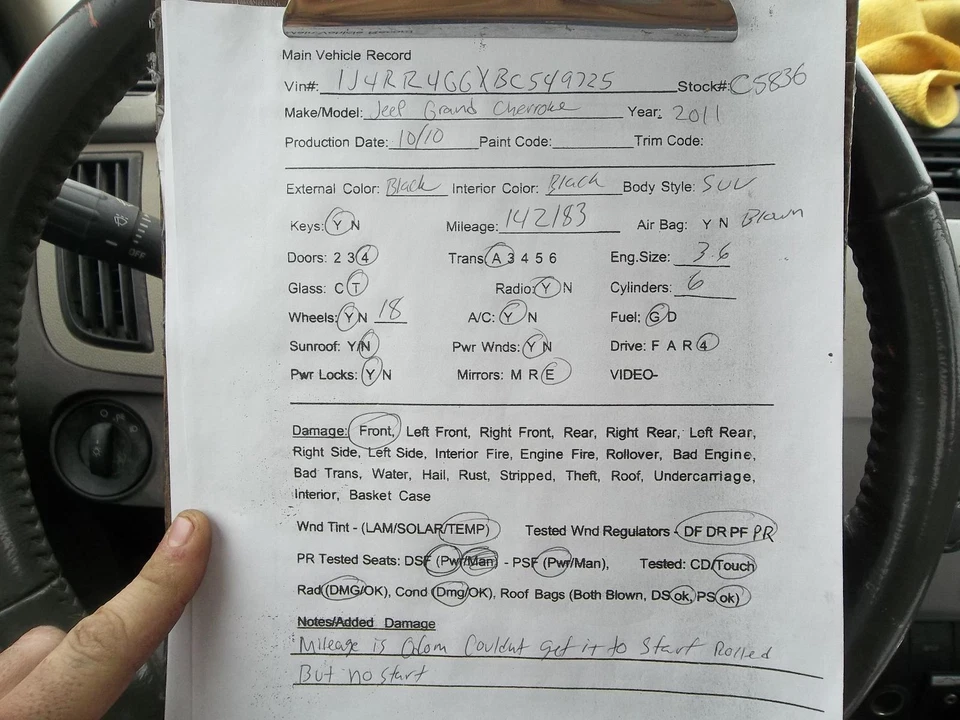 Main Vehicle Record
Vin#: 1J4RR4GGXBC549725 Stock#: C5836
Make/Model: Jeep Grand Cherroke Year: 2011
Production Date: 10/10 Paint Code: Trim Code:
External Color: Black Interior Color: Black Body Style: SUV
Keys: Y N Mileage: 142183 Air Bag: Y N Blown
Doors: 2 3 4 Trans A 3 4 5 6 Eng.Size: 3.6
Glass: C T Radio: Y N Cylinders: 6
Wheels: Y N 18 A/C: Y N Fuel: G D
Sunroof: Y/N Pwr Wnds: Y N Drive: F A R 4
Pwr Locks: Y N Mirrors: M R E VIDEO-
Damage: Front, Left Front, Right Front, Rear, Right Rear, Left Rear,
Right Side, Left Side, Interior Fire, Engine Fire, Rollover, Bad Engine,
Bad Trans, Water, Hail, Rust, Stripped, Theft, Roof, Undercarriage,
Interior, Basket Case
Wnd Tint - (LAM/SOLAR/TEMP) Tested Wnd Regulators - DF DR PF PR
PR Tested Seats: DSF (Pwr/Man) - PSF (Pwr/Man), Tested: CD/Touch
Rad (DMG/OK), Cond (Dmg/OK), Roof Bags (Both Blown, DS ok, PS ok)
Notes/Added Damage
Mileage is Odom Couldnt get it to Start Rolled
But no start
OFF